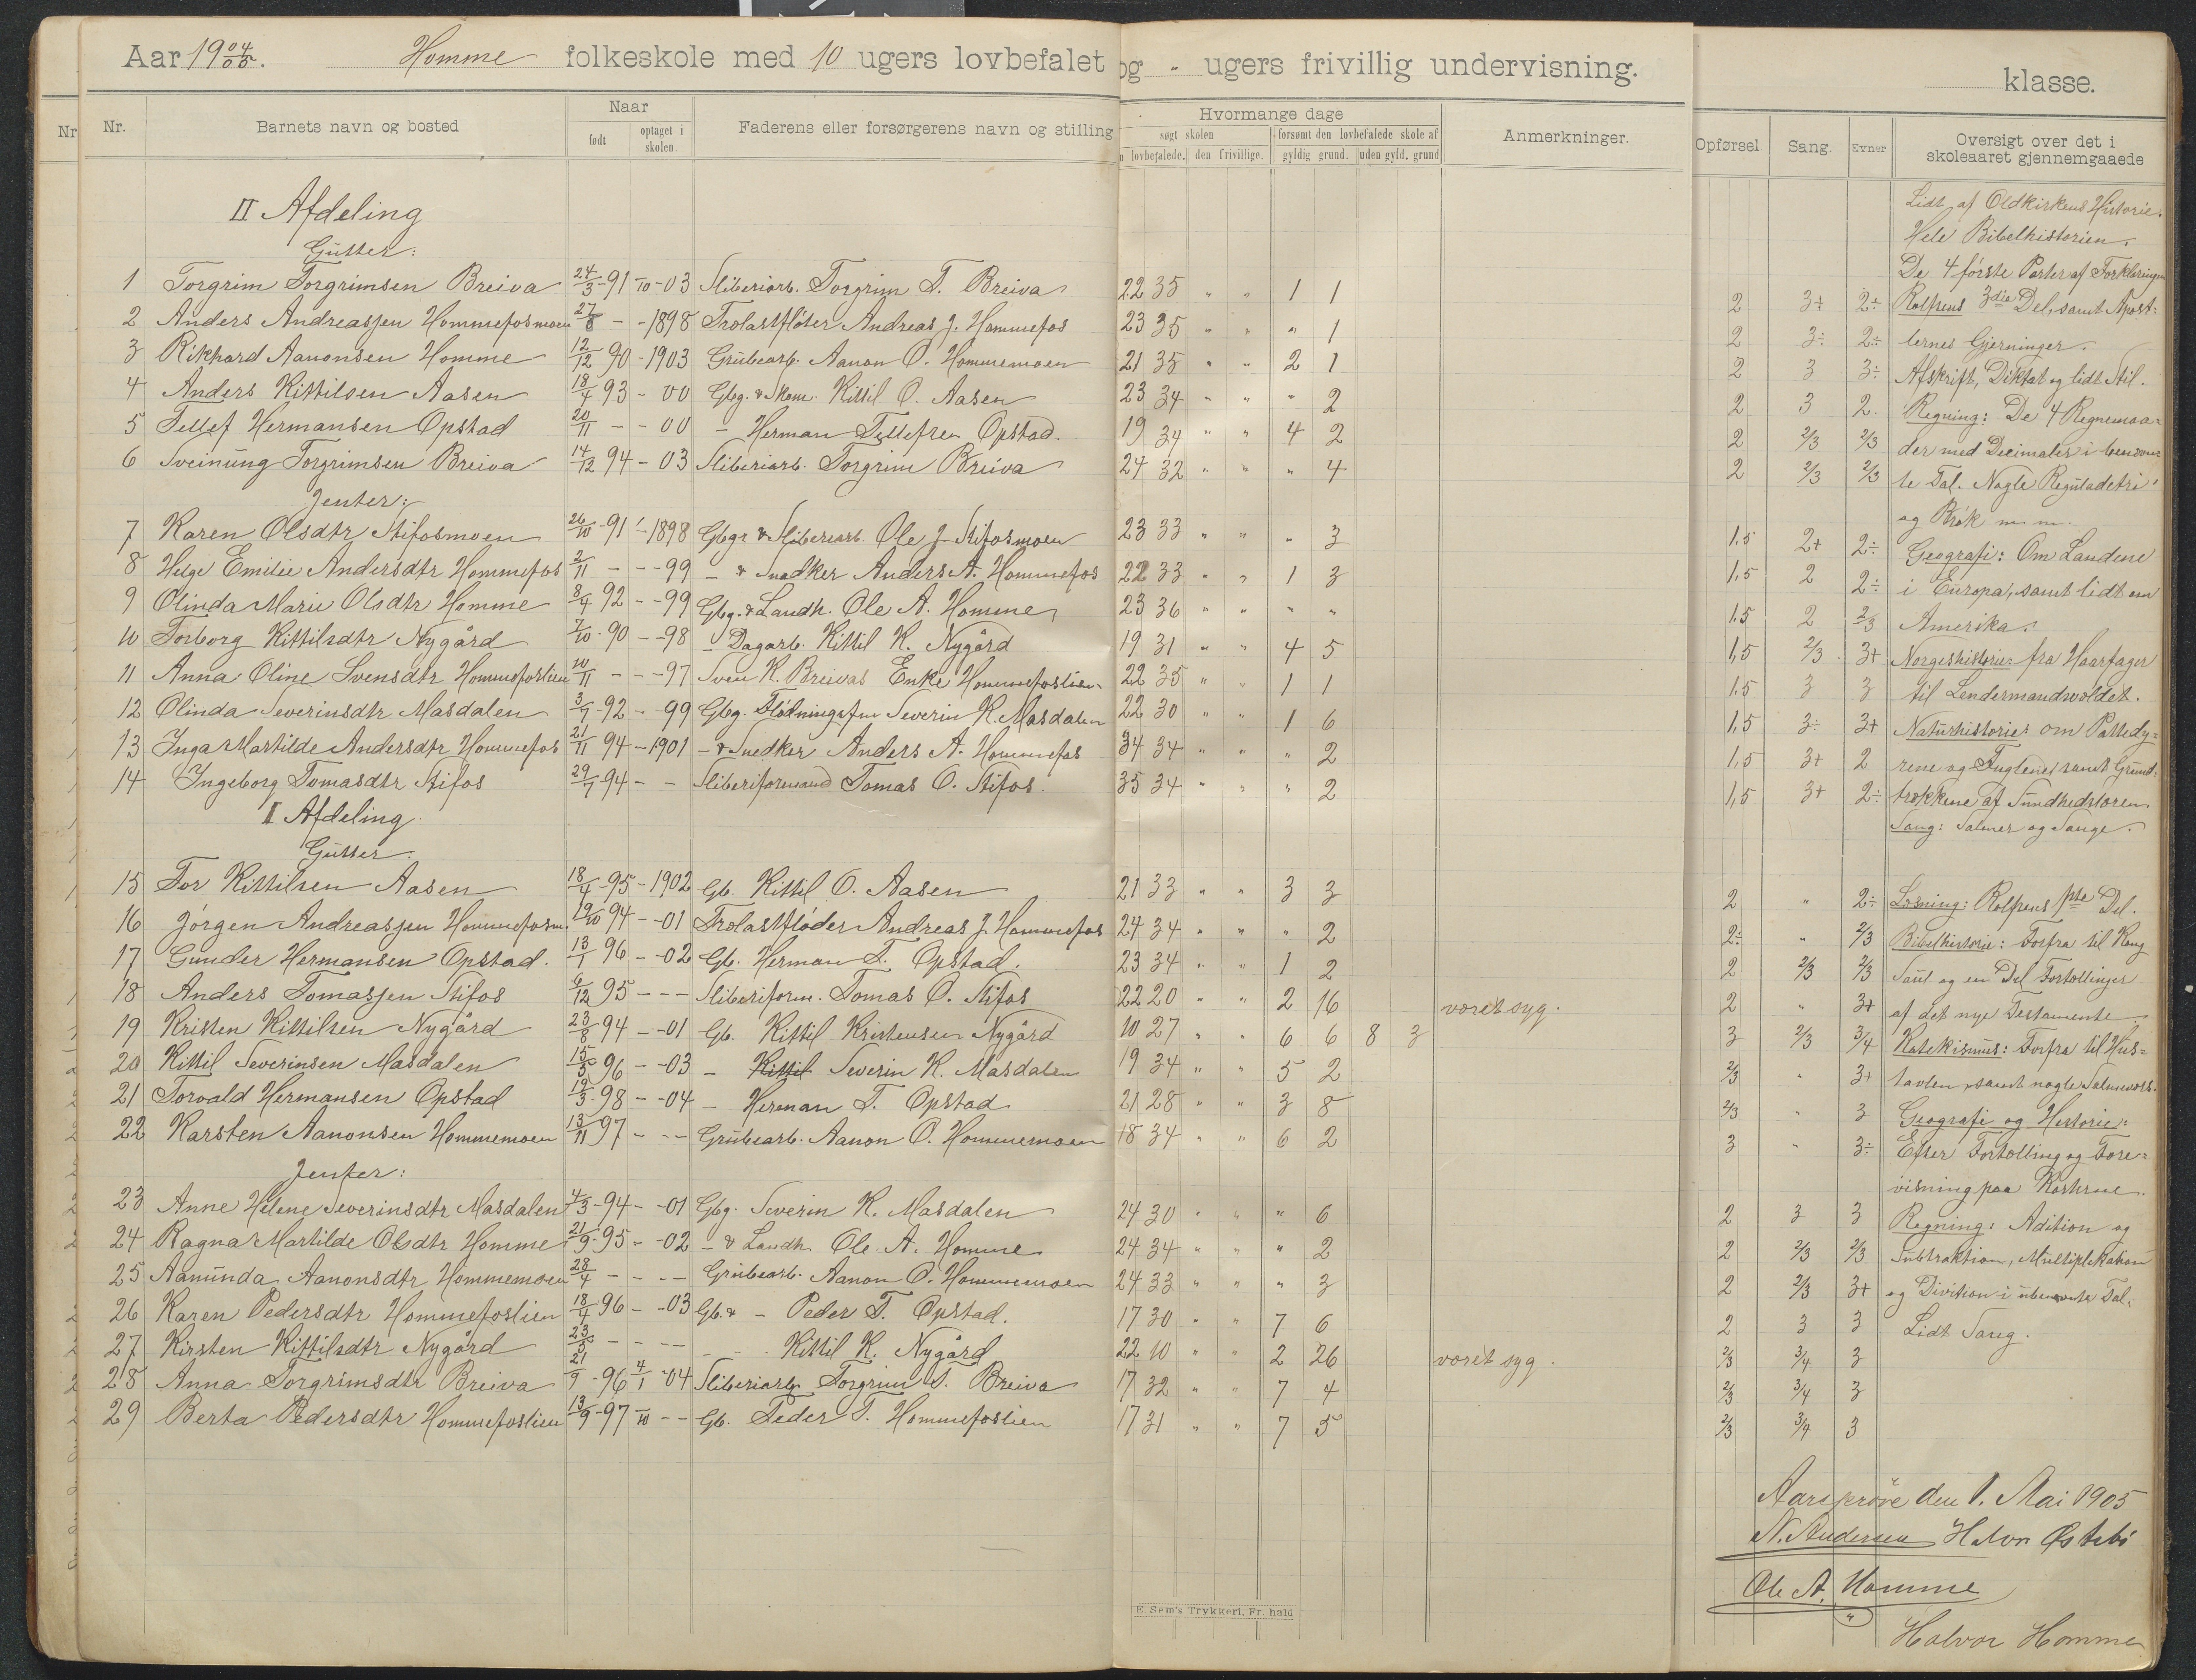 Aar 19 04/05. Homme folkeskole med 10 ugers lovbefalet og - ugers frivillig undervisning. klasse.
Nr. Barnets navn og bosted Naar Faderens eller forsørgerens navn og stilling Hvormange dage Anmerkninger. Opførsel Sang. Evner Oversigt over det i skoleaaret gjennemgaaede
født optaget i skolen. søgt skolen forsømt den lovbefalede skole af
lovbefalede. den frivillige. gyldig grund. uden gyld. grund
II Afdeling
Gutter:
1 Torgrim Torgrimsen Breiva 24/3-91 -03 Sliberiarb. Torgrim T. Breiva 22 35 " " 1 1 2 3+ 2÷
2 Anders Andreasjen Hommefosmoen 27/8 - -1898 Andreas J. Hommefos 23 35 " " " 1 2 3÷ 2÷
3 Rikhard Aanonsen Homme 12/12 90 -1903 Grubearb. Aanon O. Hommemoen 21 35 " " 2 1 2 3 3÷
4 Anders Kittilsen Aasen 18/4 93 - 00 Kittil O. Aasen 23 34 " " " 2 2 3 2.
5 Tellef Hermansen Opstad 20/11 - - 00 - Herman Tellefsen Opstad. 19 34 " " 4 2 2 2/3 2/3
6 Sveinung Torgrimsen Breiva 14/12 94 - 03 Sliberiarb. Torgrim Breiva 24 32 " " " 4 2 2/3 2/3
Jenter:
7 Karen Olsdtr Stifosmoen 26/10-91 -1898 Gbgr & Sliberiarb. Ole J. Stifosmoen 23 33 " " " 3 1.5 2+ 2÷
8 Helge Emilie Andersdtr Hommefos 2/11 - - -99 - & Snedker Anders A. Hommefos 22 33 " " 1 3 1.5 2 2÷
9 Olinda Marie Olsdtr Homme 8/4 92 - -99 Gbg. & Landh. Ole A. Homme 23 36 " " " " 1.5 2 2/3
10 Torborg Kittilsdtr Nygård 7/10-90 - -98 - Dagarb. Kittil K. Nygård 19 31 " " 4 5 1,5 2/3 3+
11 Anna Oline Svensdtr Hommefoslien 10/11 - - -97 Sven K. Breivas Enke Hommefoslien 22 35 " " 1 1 1.5 3 3
12 Olinda Severinsdtr Masdalen 3/7-92 - -99 Gbg. Severin K. Masdalen 22 30 " " 1 6 1,5 3÷ 3+
13 Inga Martilde Andersdtr Hommefos 21/11 94 -1901 - & Snedker Anders A. Hommefos 34 34 " " " 2 1,5 3+ 2
14 Ingeborg Tomasdtr Stifos 29/7-94 - - Sliberiformand Tomas O. Stifos. 35 34 " " " 2 1,5 3+ 2÷
I Afdeling
Gutter.
15 Tor Kittilsen Aasen 18/4-95 -1902 Gb. Kittil O. Aasen 21 33 " " 3 3 2 " 2÷
16 Jörgen Andreasjen Hommefosm. 19/10 94 - -01 Andreas J. Hommefos 24 34 " " " 2 2÷ " 2/3
17 Gunder Hermansen Opstad. 13/1 96 - -02 Gb. Herman T. Opstad. 23 34 " " 1 2 2 2/3 2/3
18 Anders Tomasjen Stifos 6/12 95 - - - Sliberiform. Tomas O. Stifos 22 20 " " 2 16 været syg. 2 " 3+
19 Kristen Kittilsen Nygård 23/8 94 - -01 Gb. Kittil Kristensen Nygård 10 27 " " 6 6 8 3 3 2/3 3/4
20 Kittil Severinsen Masdalen 15/5 96 - -03 - Kittil Severin K. Masdalen 19 34 " " 5 2 2/3 " 3+
21 Torvald Hermansen Opstad 19/3-98 - -04 - Herman T. Opstad 21 28 " " 3 8 2/3 " 3
22 Karsten Aanonsen Hommemoen 13/11 97 - - - Grubearb. Aanon O. Hommemoen 18 34 " " 6 2 3 " 3÷
Jenter:
23 Anne Helene Severinsdtr Masdalen 4/3-94 - -01 Gbg. Severin K. Masdalen 24 30 " " " 6 2 3 3
24 Ragna Martilde Olsdtr Homme 21/9-95 - -02 - & Landh. Ole A. Homme 24 34 " " " 2 2 2/3 2/3
25 Aanunda Aanonsdtr Hommemoen 28/4 - - - - Grubearb. Aanon O. Hommemoen 24 33 " " " 3 2 2/3 3+
26 Karen Pedersdtr Hommefoslien 18/4 96 - -03 Gb. & - Peder T. Opstad. 17 30 " " 7 6 2 3 3
27 Kirsten Kittilsdtr Nygård 23/5 - - - - - Kittil K. Nygård 22 10 " " 2 26 været syg. 2/3 3/4 3
28 Anna Torgrimsdtr Breiva 21/9-96 4/1-04 Sliberiarb. Torgrim T. Breiva 17 32 " " 7 4 2/3 3/4 3
29 Berta Pedersdtr Hommefoslien 13/9-97 - - Gb. Peder T. Hommefoslien 17 31 " " 7 5 2/3 3/4 3
Lidt af Oldkirkens Historie.
Hele Bibelhistorien.
De 4 første Parter af Forklaringen
Rolfsens 3die Del, samt Apost=
lernes Gjerninger.
Afskrift, Diktat og lidt Stil.
Regning: De 4 Regnemaa=
der med Decimaler i benævn
te Tal. Nogle Reguladetri
og Brök m.m.
Geografi: Om Landene
i Europa, samt lidt om
Amerika.
Norgeshistorie: fra Haarfager
til Lendermandsvældet.
Naturhistorie: om Pattedy=
rene og Fuglene, samt Grund=
trækkene af Sundhedslæren.
Sang: Salmer og Sange.
Læsning: Rolfsens 1ste Del.
Bibelhistorie: Forfra til Kong
Saul og en Del Fortællinger
af det nye Testamente.
Katekismus: Forfra til Hus=
tavlen, samt nogle Salmevers.
Geografi og Historie:
Efter Fortælling og Fore=
visning paa Karterne.
Regning: Adition og
Subtraktion, Multiplikation
og Division i ubenævnte Tal.
Lidt Sang.
Aarsprøve den 1. Mai 1905
N. Andersen Halvor Østebø
Ole A. Homme
Halvor Homme
E. Sem's Trykkeri. Fr. hald